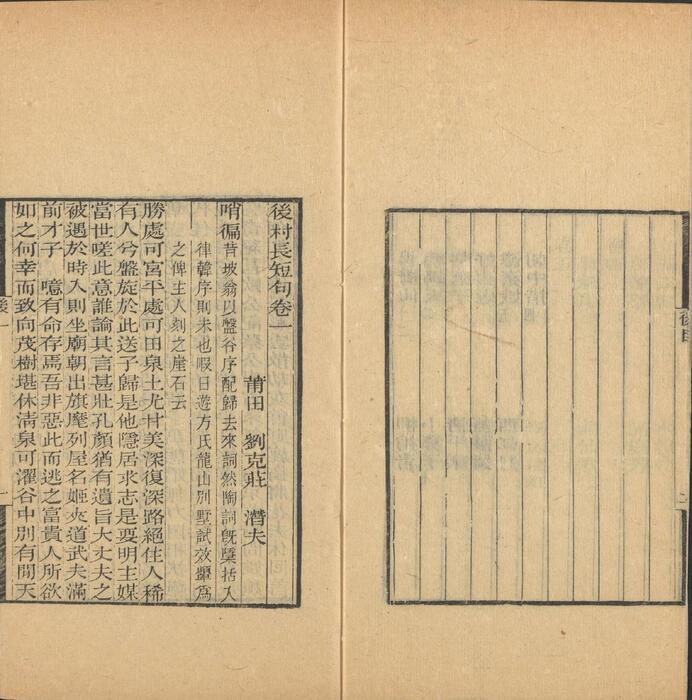 後目
二
後村長短句卷一
莆田 劉克莊 潛夫
哨徧昔坡翁以盤谷序配歸去來詞然陶詞旣檃括入
律韓序則未也暇日遊方氏龍山別墅試效顰爲
之俾主人刻之崖石云
勝處可宮平處可田泉土尤甘美深復深路絕住人稀
有人兮盤旋於此送子歸是他隱居求志是要明主媒
當世嗟此意誰論其言甚壯孔顏猶有遺旨大丈夫之
被遇於時入則坐廟朝出旗麾列屋名姬夾道武夫滿
前才子 噫有命存焉吾非惡此而逃之富貴人所欲
如之何幸而致向茂樹堪休淸泉可濯谷中別有閒天
後一
一